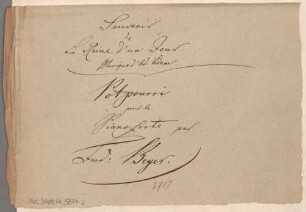 Souvenir
de
La Reine d'un Jour
Musique d'Ad. Adam
Potpourri
pour le
Pianoforte par
Ferd. Beyer.
5417